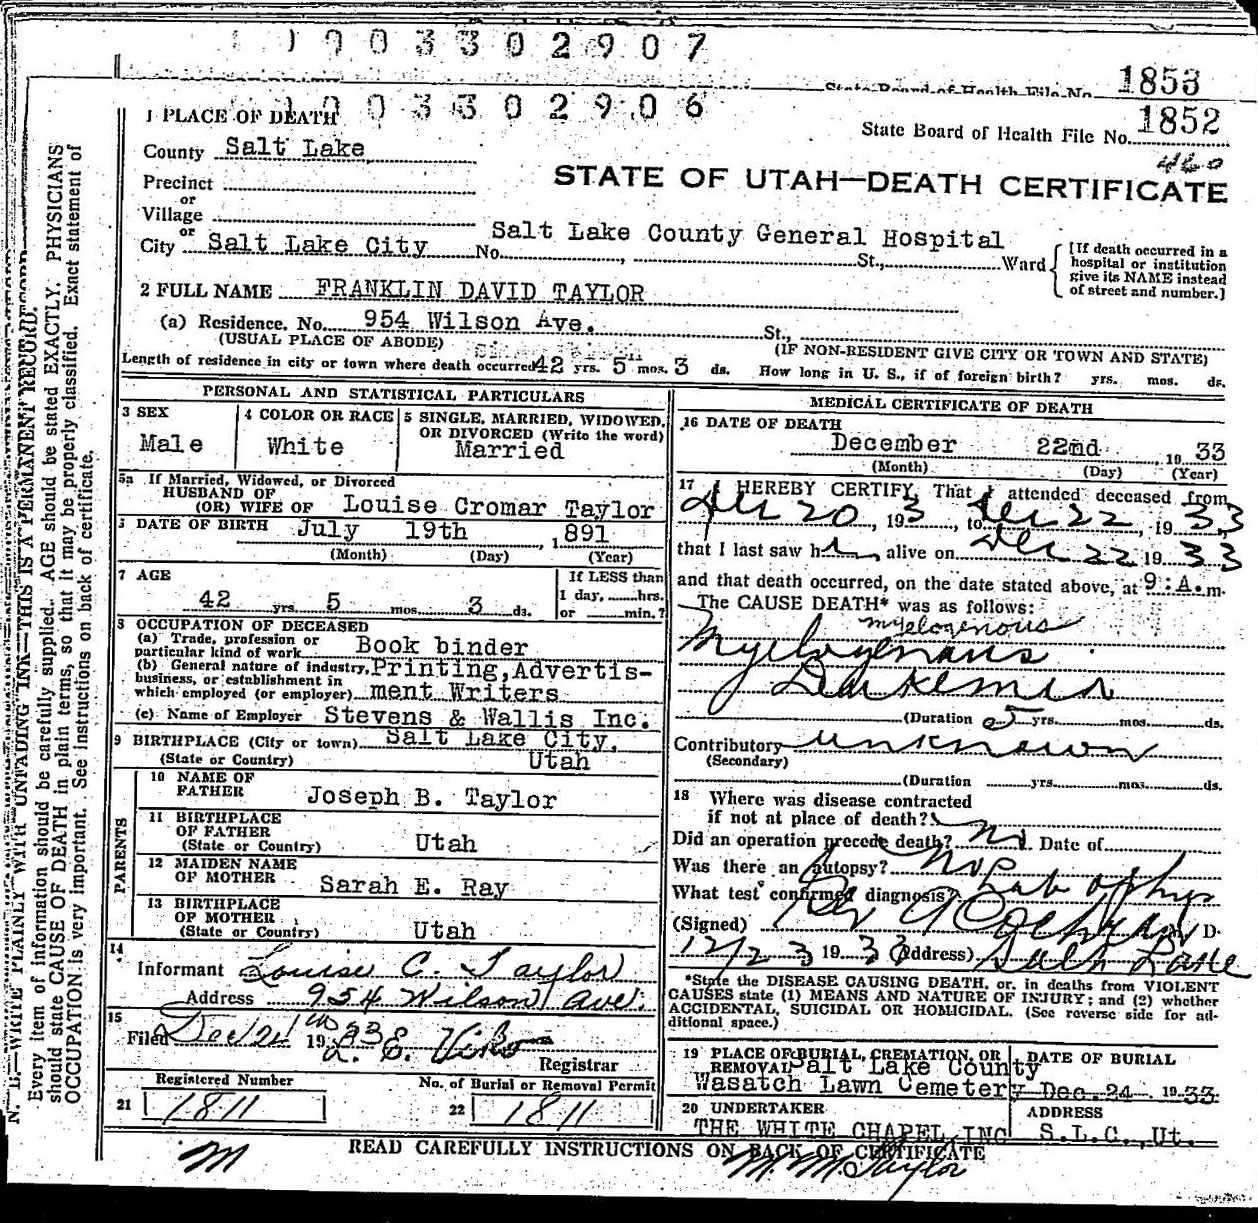 1003302907
State Board of Health File No. 1853
1003302906
1 PLACE OF DEATH
State Board of Health File No. 1852
County Salt Lake
460
STATE OF UTAH—DEATH CERTIFICATE
Precinct
or
Village
or
City Salt Lake City No. Salt Lake County General Hospital St., Ward
[If death occurred in a hospital or institution give its NAME instead of street and number.]
2 FULL NAME FRANKLIN DAVID TAYLOR
(a) Residence. No. 954 Wilson Ave. St.,
(USUAL PLACE OF ABODE) (IF NON-RESIDENT GIVE CITY OR TOWN AND STATE)
Length of residence in city or town where death occurred 42 yrs. 5 mos. 3 ds. How long in U. S., if of foreign birth? yrs. mos. ds.
PERSONAL AND STATISTICAL PARTICULARS
3 SEX Male
4 COLOR OR RACE White
5 SINGLE, MARRIED, WIDOWED, OR DIVORCED (Write the word) Married
5a If Married, Widowed, or Divorced
HUSBAND OF
(OR) WIFE OF Louise Cromar Taylor
DATE OF BIRTH July 19th 1891
(Month) (Day) (Year)
7 AGE
42 yrs. 5 mos. 3 ds.
If LESS than
1 day, hrs.
or min.?
8 OCCUPATION OF DECEASED
(a) Trade, profession or
particular kind of work Book binder
(b) General nature of industry, Printing, Advertis-
business, or establishment in
which employed (or employer) ment Writers
(c) Name of Employer Stevens & Wallis Inc.
9 BIRTHPLACE (City or town) Salt Lake City,
(State or Country) Utah
PARENTS
10 NAME OF
FATHER Joseph B. Taylor
11 BIRTHPLACE
OF FATHER
(State or Country) Utah
12 MAIDEN NAME
OF MOTHER Sarah E. Ray
13 BIRTHPLACE
OF MOTHER
(State or Country) Utah
14
Informant Louise C. Taylor
Address 954 Wilson Ave.
15
Filed Dec 24 1933
Registrar
Registered Number
21 1811
No. of Burial or Removal Permit
22 1811
MEDICAL CERTIFICATE OF DEATH
16 DATE OF DEATH
December 22nd 1933
(Month) (Day) (Year)
17 I HEREBY CERTIFY, That I attended deceased from
Dec 20, 193 3, to Dec 22, 1933,
that I last saw h alive on Dec 22 1933
and that death occurred, on the date stated above, at 9:A.m.
The CAUSE DEATH* was as follows:
myelogenous
Myelogenous
Leukemia
(Duration yrs. mos. ds.
Contributory unknown
(Secondary)
(Duration yrs. mos. ds.
18 Where was disease contracted
if not at place of death?
Did an operation precede death? No Date of
Was there an autopsy? No
What test confirmed diagnosis? Lab & Phys
(Signed) Cochran M D.
12/23 1933 (Address) Salt Lake
*State the DISEASE CAUSING DEATH, or, in deaths from VIOLENT
CAUSES state (1) MEANS AND NATURE OF INJURY; and (2) whether
ACCIDENTAL, SUICIDAL OR HOMICIDAL. (See reverse side for ad-
ditional space.)
19 PLACE OF BURIAL, CREMATION, OR
REMOVAL Salt Lake County
Wasatch Lawn Cemetery
DATE OF BURIAL
Dec. 24 1933
20 UNDERTAKER
THE WHITE CHAPEL INC
ADDRESS
S.L.C., Ut.
READ CAREFULLY INSTRUCTIONS ON BACK OF CERTIFICATE
M
M. M. Taylor
N. B.—WRITE PLAINLY WITH UNFADING INK—THIS IS A PERMANENT RECORD.
Every item of information should be carefully supplied. AGE should be stated EXACTLY. PHYSICIANS
should state CAUSE OF DEATH in plain terms, so that it may be properly classified. Exact statement of
OCCUPATION is very important. See instructions on back of certificate.